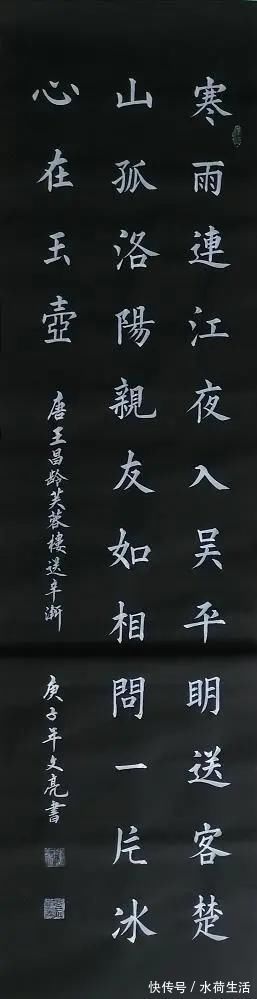 寒雨連江夜入吴平明送客楚
山孤洛陽親友如相問一片冰
心在玉壺
唐王昌齡芙蓉樓送辛漸
庚子年文亮書
快传号/水荷生活